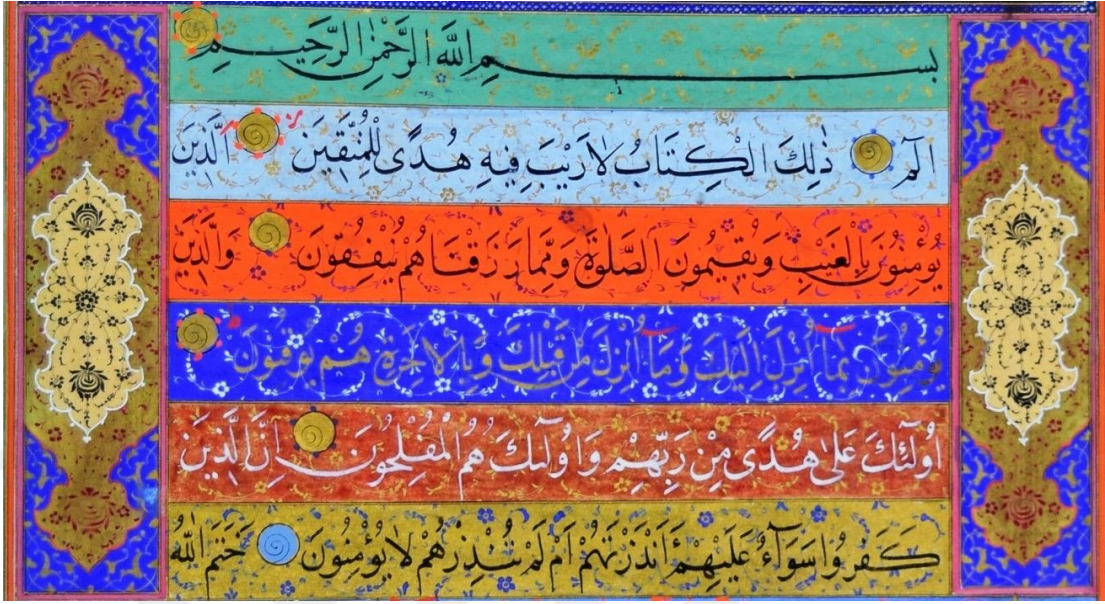 بِسْمِ اللّٰهِ الرَّحْمٰنِ الرَّحِيمِ
الٓمٓ ذٰلِكَ الْكِتَابُ لَا رَيْبَ فِيهِ هُدًى لِلْمُتَّقِينَ اَلَّذِينَ
يُؤْمِنُونَ بِالْغَيْبِ وَيُقِيمُونَ الصَّلٰوةَ وَمِمَّا رَزَقْنَاهُمْ يُنْفِقُونَ وَالَّذِينَ
يُؤْمِنُونَ بِمَٓا اُنْزِلَ اِلَيْكَ وَمَٓا اُنْزِلَ مِنْ قَبْلِكَ وَبِالْاٰخِرَةِ هُمْ يُوقِنُونَ
اُولٰٓئِكَ عَلٰى هُدًى مِنْ رَبِّهِمْ وَاُولٰٓئِكَ هُمُ الْمُفْلِحُونَ اِنَّ الَّذِينَ
كَفَرُوا سَوَٓاءٌ عَلَيْهِمْ ءَاَنْذَرْتَهُمْ اَمْ لَمْ تُنْذِرْهُمْ لَا يُؤْمِنُونَ خَتَمَ اللّٰهُ